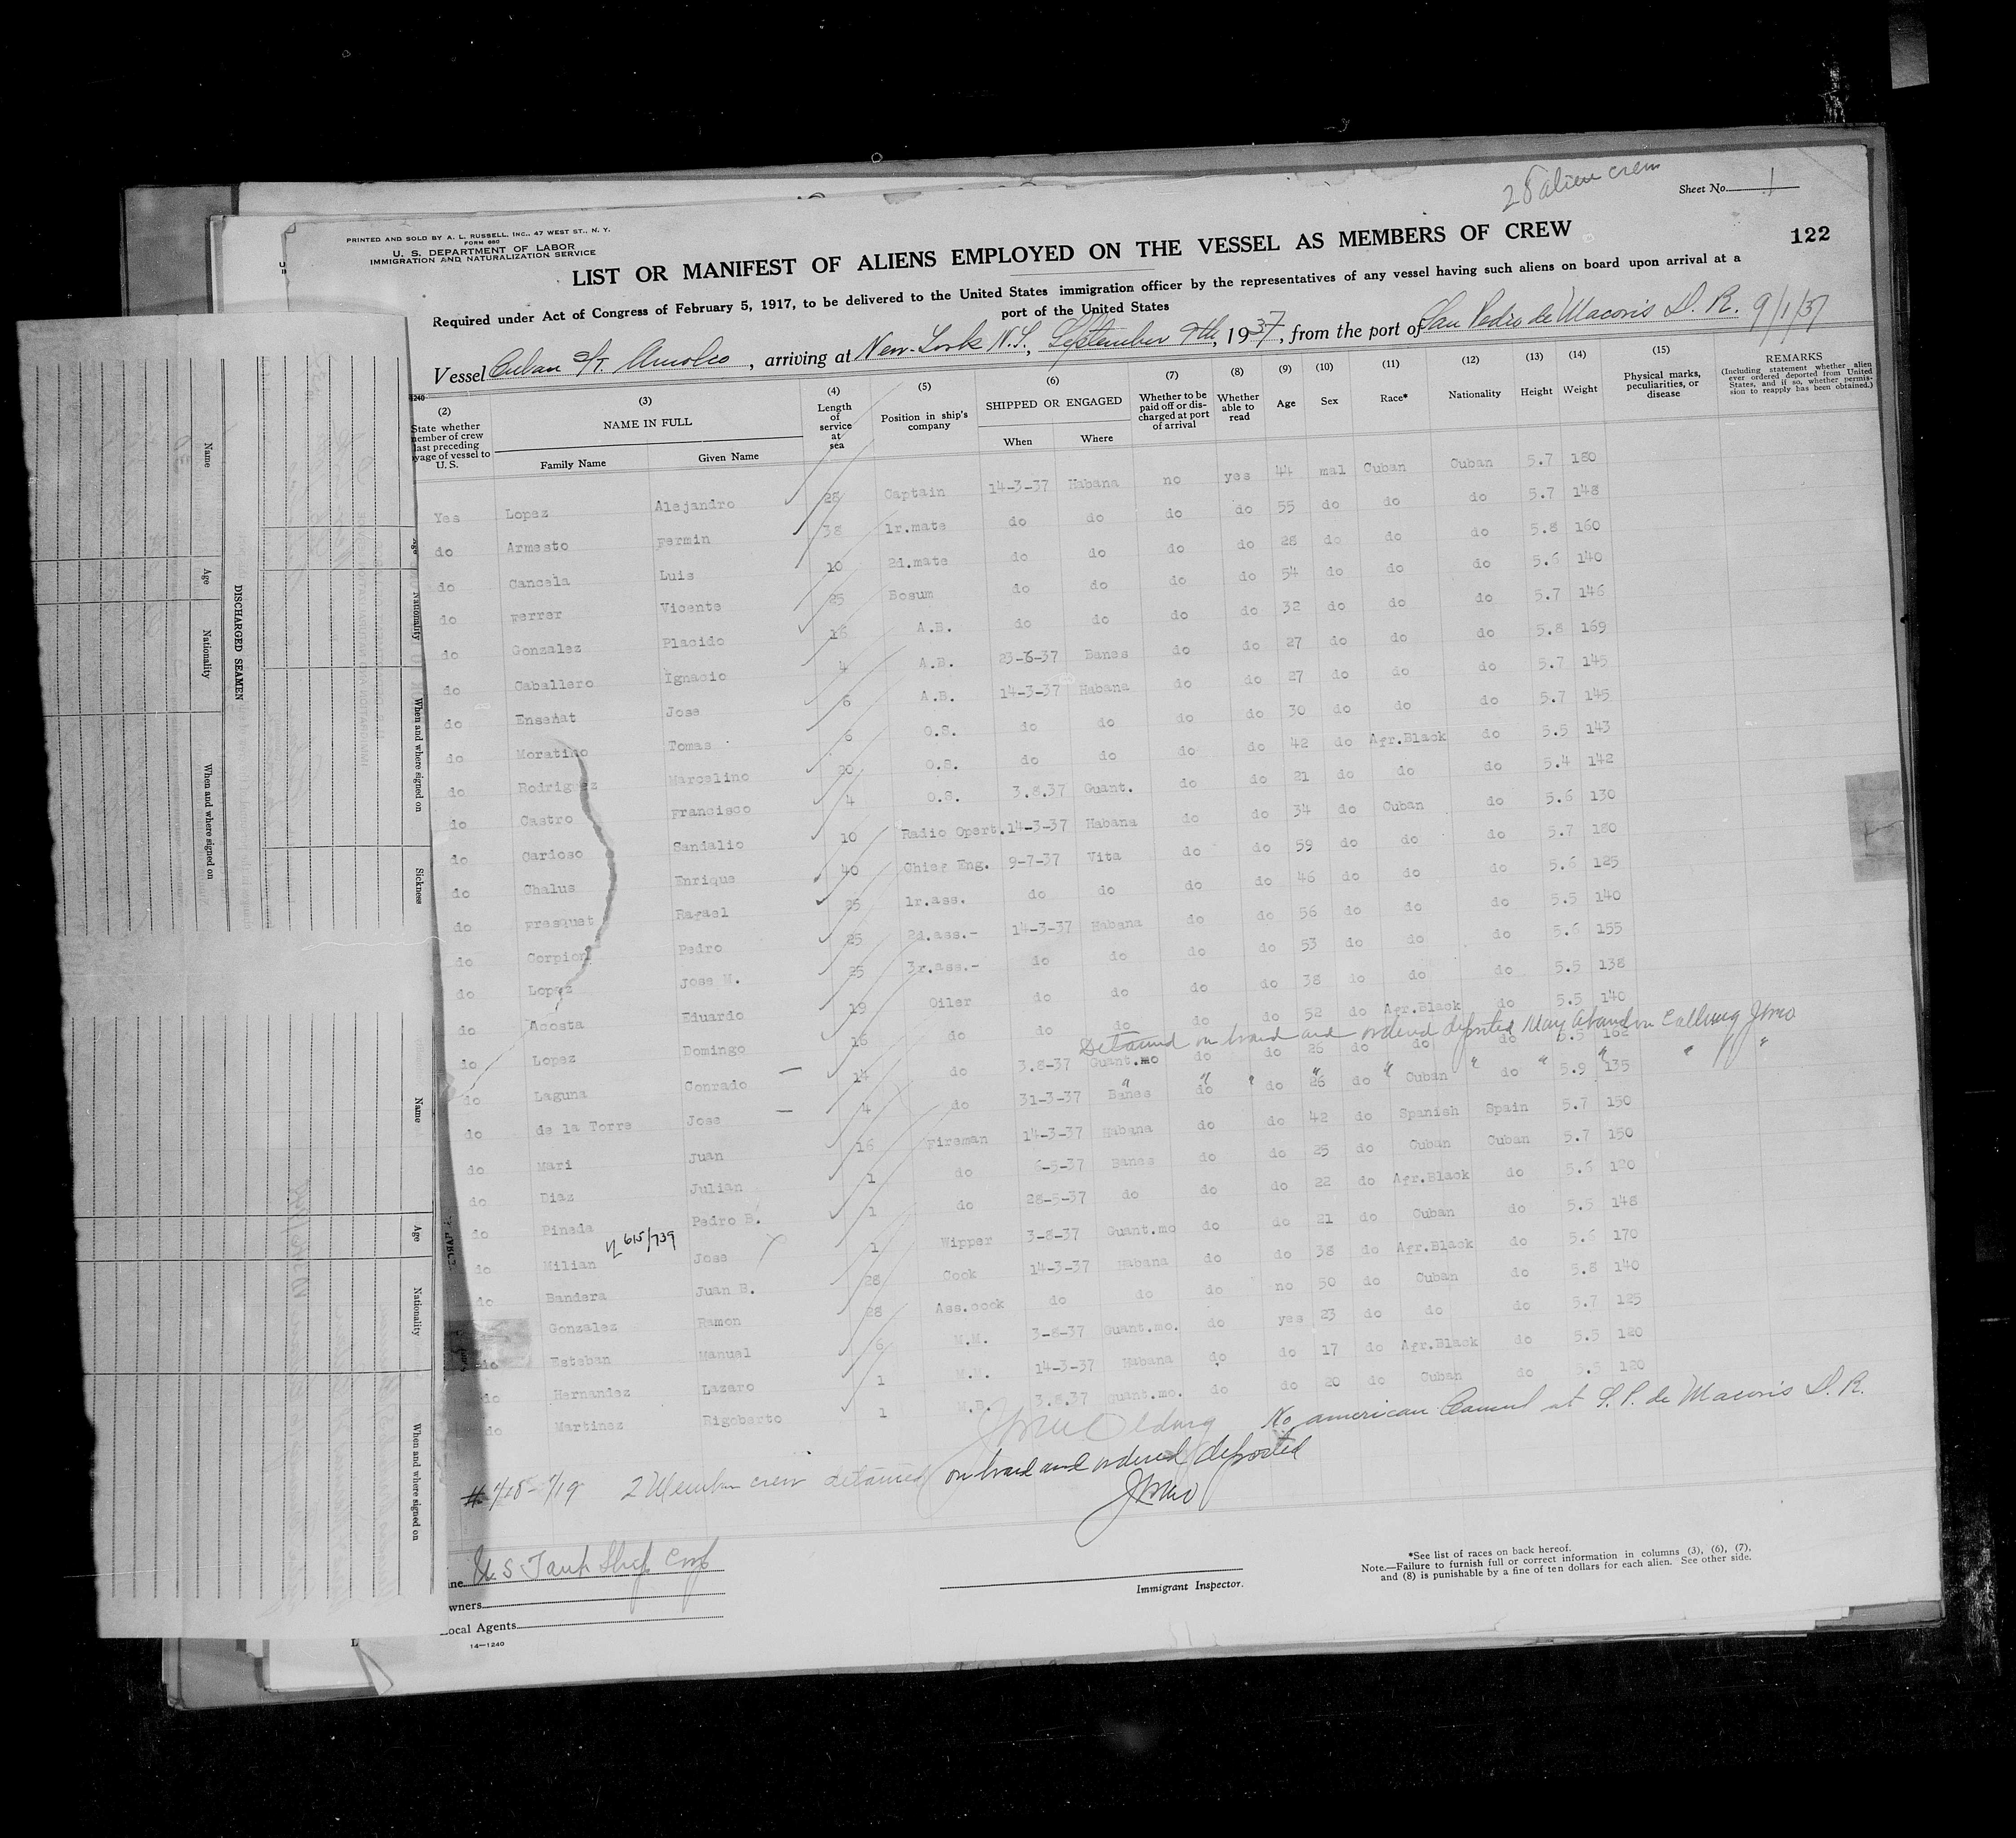 28 alien crew
Sheet No. 1
122
PRINTED AND SOLD BY A. L. RUSSELL, INC., 47 WEST ST., N. Y.
FORM 680
U. S. DEPARTMENT OF LABOR
IMMIGRATION AND NATURALIZATION SERVICE
LIST OR MANIFEST OF ALIENS EMPLOYED ON THE VESSEL AS MEMBERS OF CREW
Required under Act of Congress of February 5, 1917, to be delivered to the United States immigration officer by the representatives of any vessel having such aliens on board upon arrival at a
port of the United States
Vessel Cuban S/T. , arriving at New-York N.Y., September 9th, 1937, from the port of San Pedro de Macoris D. R. 9/1/37
(2) State whether member of crew last preceding voyage of vessel to U. S.
(3) NAME IN FULL Family Name Given Name
(4) Length of service at sea
(5) Position in ship's company
(6) SHIPPED OR ENGAGED When Where
(7) Whether to be paid off or discharged at port of arrival
(8) Whether able to read
(9) Age
(10) Sex
(11) Race*
(12) Nationality
(13) Height
(14) Weight
(15) Physical marks, peculiarities, or disease
REMARKS (Including statement whether alien ever ordered deported from United States, and if so, whether permission to reapply has been obtained.)
Yes Lopez Alejandro 28 Captain 14-3-37 Habana no yes 44 mal Cuban Cuban 5.7 180
do Armesto Fermin 38 1r.mate do do do do 55 do do do 5.7 148
do Cancela Luis 10 2d.mate do do do do 28 do do do 5.8 160
do Ferrer Vicente 25 Bosum do do do do 54 do do do 5.6 140
do Gonzalez Placido 16 A.B. do do do do 32 do do do 5.7 146
do Caballero Ignacio 4 A.B. 23-6-37 Banes do do 27 do do do 5.8 169
do Enseñat Jose 6 A.B. 14-3-37 Habana do do 27 do do do 5.7 145
do Moratino Tomas 6 O.S. do do do do 30 do do do 5.7 145
do Rodriguez Marcelino 20 O.S. do do do do 42 do Afr.Black do 5.5 143
do Castro Francisco 4 O.S. 3.8.37 Guant. do do 21 do do do 5.4 142
do Cardoso Sandalio 10 Radio Opert. 14-3-37 Habana do do 34 do Cuban do 5.6 130
do Chalus Enrique 40 Chief Eng. 9-7-37 Vita do do 59 do do do 5.7 180
do Fresquet Rafael 25 1r.ass. do do do do 46 do do do 5.6 125
do Corpion Pedro 25 2d.ass.- 14-3-37 Habana do do 56 do do do 5.5 140
do Lopez Jose M. 25 3r.ass.- do do do do 53 do do do 5.6 155
do Acosta Eduardo 19 Oiler do do do do 38 do do do 5.5 138
do Lopez Domingo 16 do do do do do 52 do Afr.Black do 5.5 140
Detained on board and ordered deported May abandon Calling
do Laguna Conrado 14 do 3.8-37 Guant.mo do do 26 do do do 5.5 162
do de la Torre Jose 4 do 31-3-37 Banes do do 26 do Cuban do 5.9 135
do Mari Juan 16 Fireman 14-3-37 Habana do do 42 do Spanish Spain 5.7 150
do Diaz Julian 1 do 6-5-37 Banes do do 25 do Cuban Cuban 5.7 150
do Pineda Pedro B. 1 do 28-5-37 do do do 22 do Afr.Black do 5.6 120
615/739
do Milian Jose 1 Wipper 3-8-37 Guant.mo do do 21 do Cuban do 5.5 148
do Bandera Juan B. 28 Cook 14-3-37 Habana do do 38 do Afr.Black do 5.6 170
Gonzalez Ramon 28 Ass.cook do do do no 50 do Cuban do 5.8 140
do Esteban Manuel 6 M.M. 3-8-37 Guant.mo. do yes 23 do do do 5.7 125
do Hernandez Lazaro 1 M.M. 14-3-37 Habana do do 17 do Afr.Black do 5.5 120
do Martinez Rigoberto 1 M.B. 3.8.37 Guant.mo. do do 20 do Cuban do 5.5 120
No american Consul at S. P. de Macoris D. R.
#18-#19 2 Member crew detained on board and ordered deported
Line U. S Tank Ship Corp
Owners
Local Agents
14—1240
Immigrant Inspector.
*See list of races on back hereof.
Note.—Failure to furnish full or correct information in columns (3), (6), (7),
and (8) is punishable by a fine of ten dollars for each alien. See other side.
DISCHARGED SEAMEN
Name
Age
Nationality
When and where signed on
Sickness
Name
Age
Nationality
When and where signed on